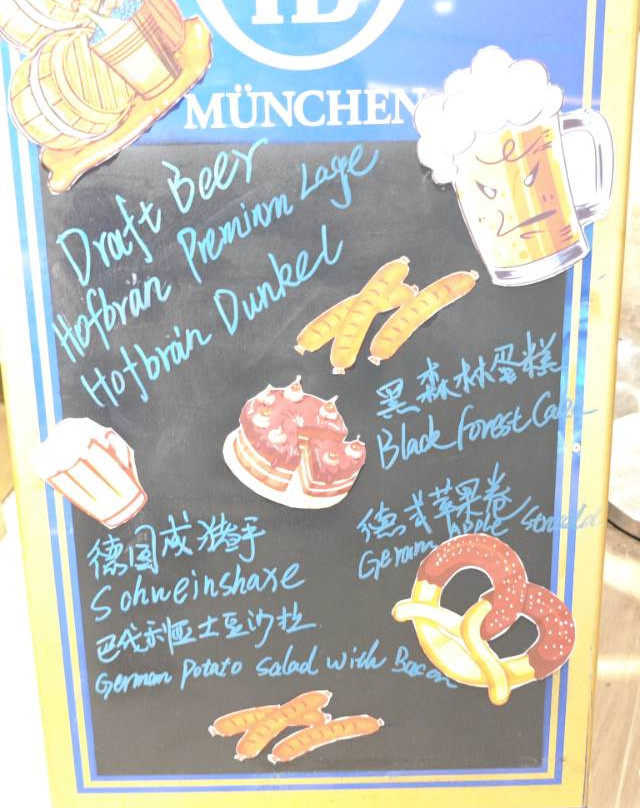 HB
MÜNCHEN
Draft Beer
Hofbrán Premium Lage
Hofbrán Dunkel
黑森林蛋糕
Black forest Cake
德式苹果卷
German Apple strudel
德国咸猪手
Schweinshaxe
巴伐利亚土豆沙拉
German Potato Salad with Bacon